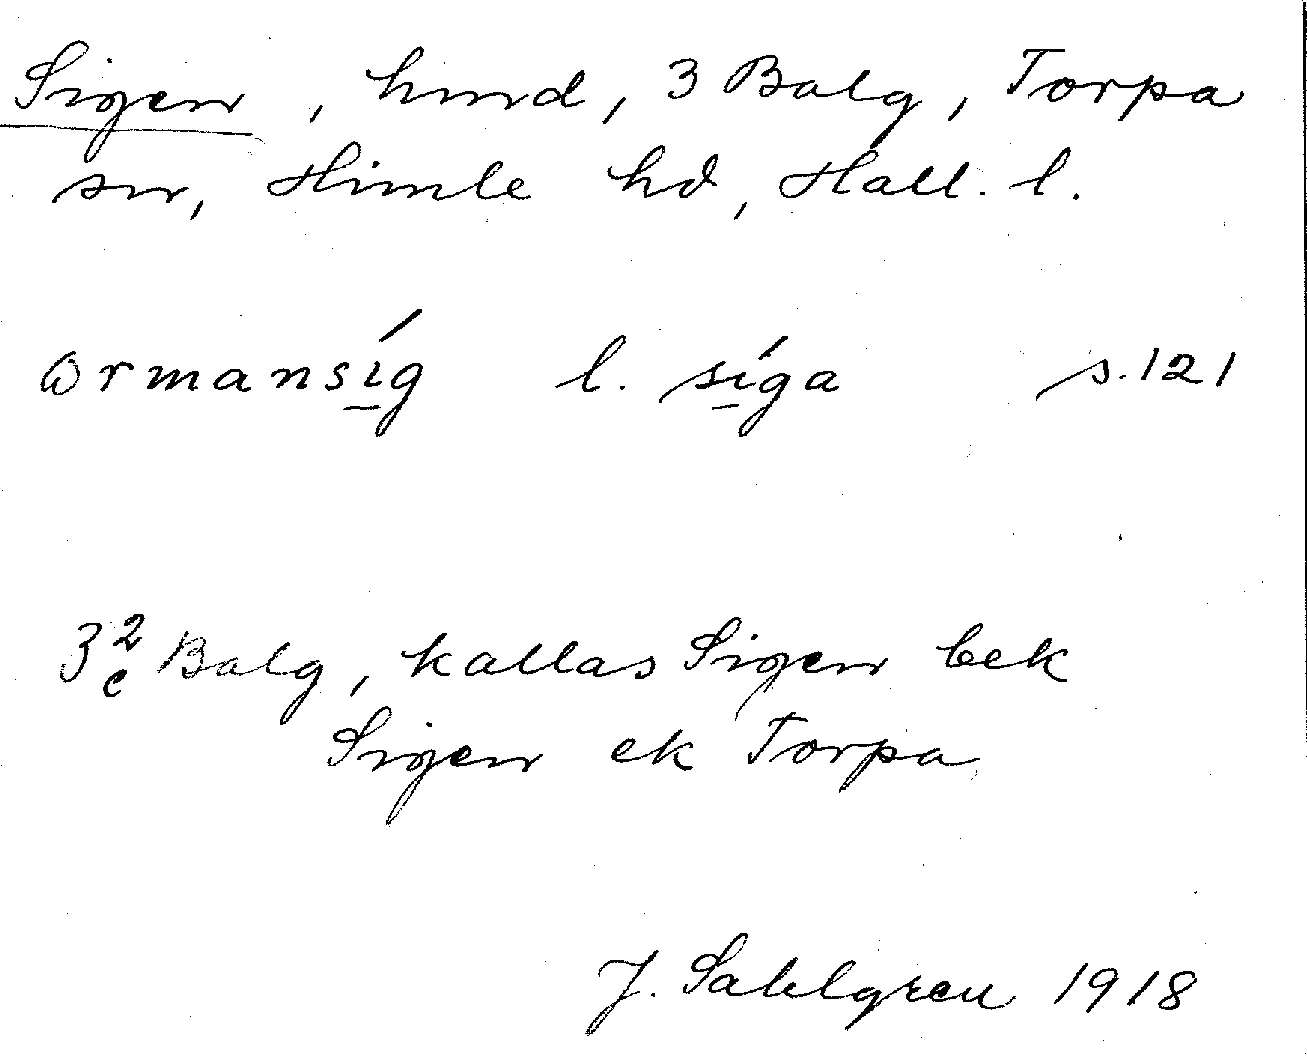 Sigen, hmd, 3 Balg, Torpa
sn, Himle hd, Hall. l.
ormansíg l. síga s. 121
3 2/c Balg, kallas Sigen bek
Sigen ek Torpa
J. Sahlgren 1918